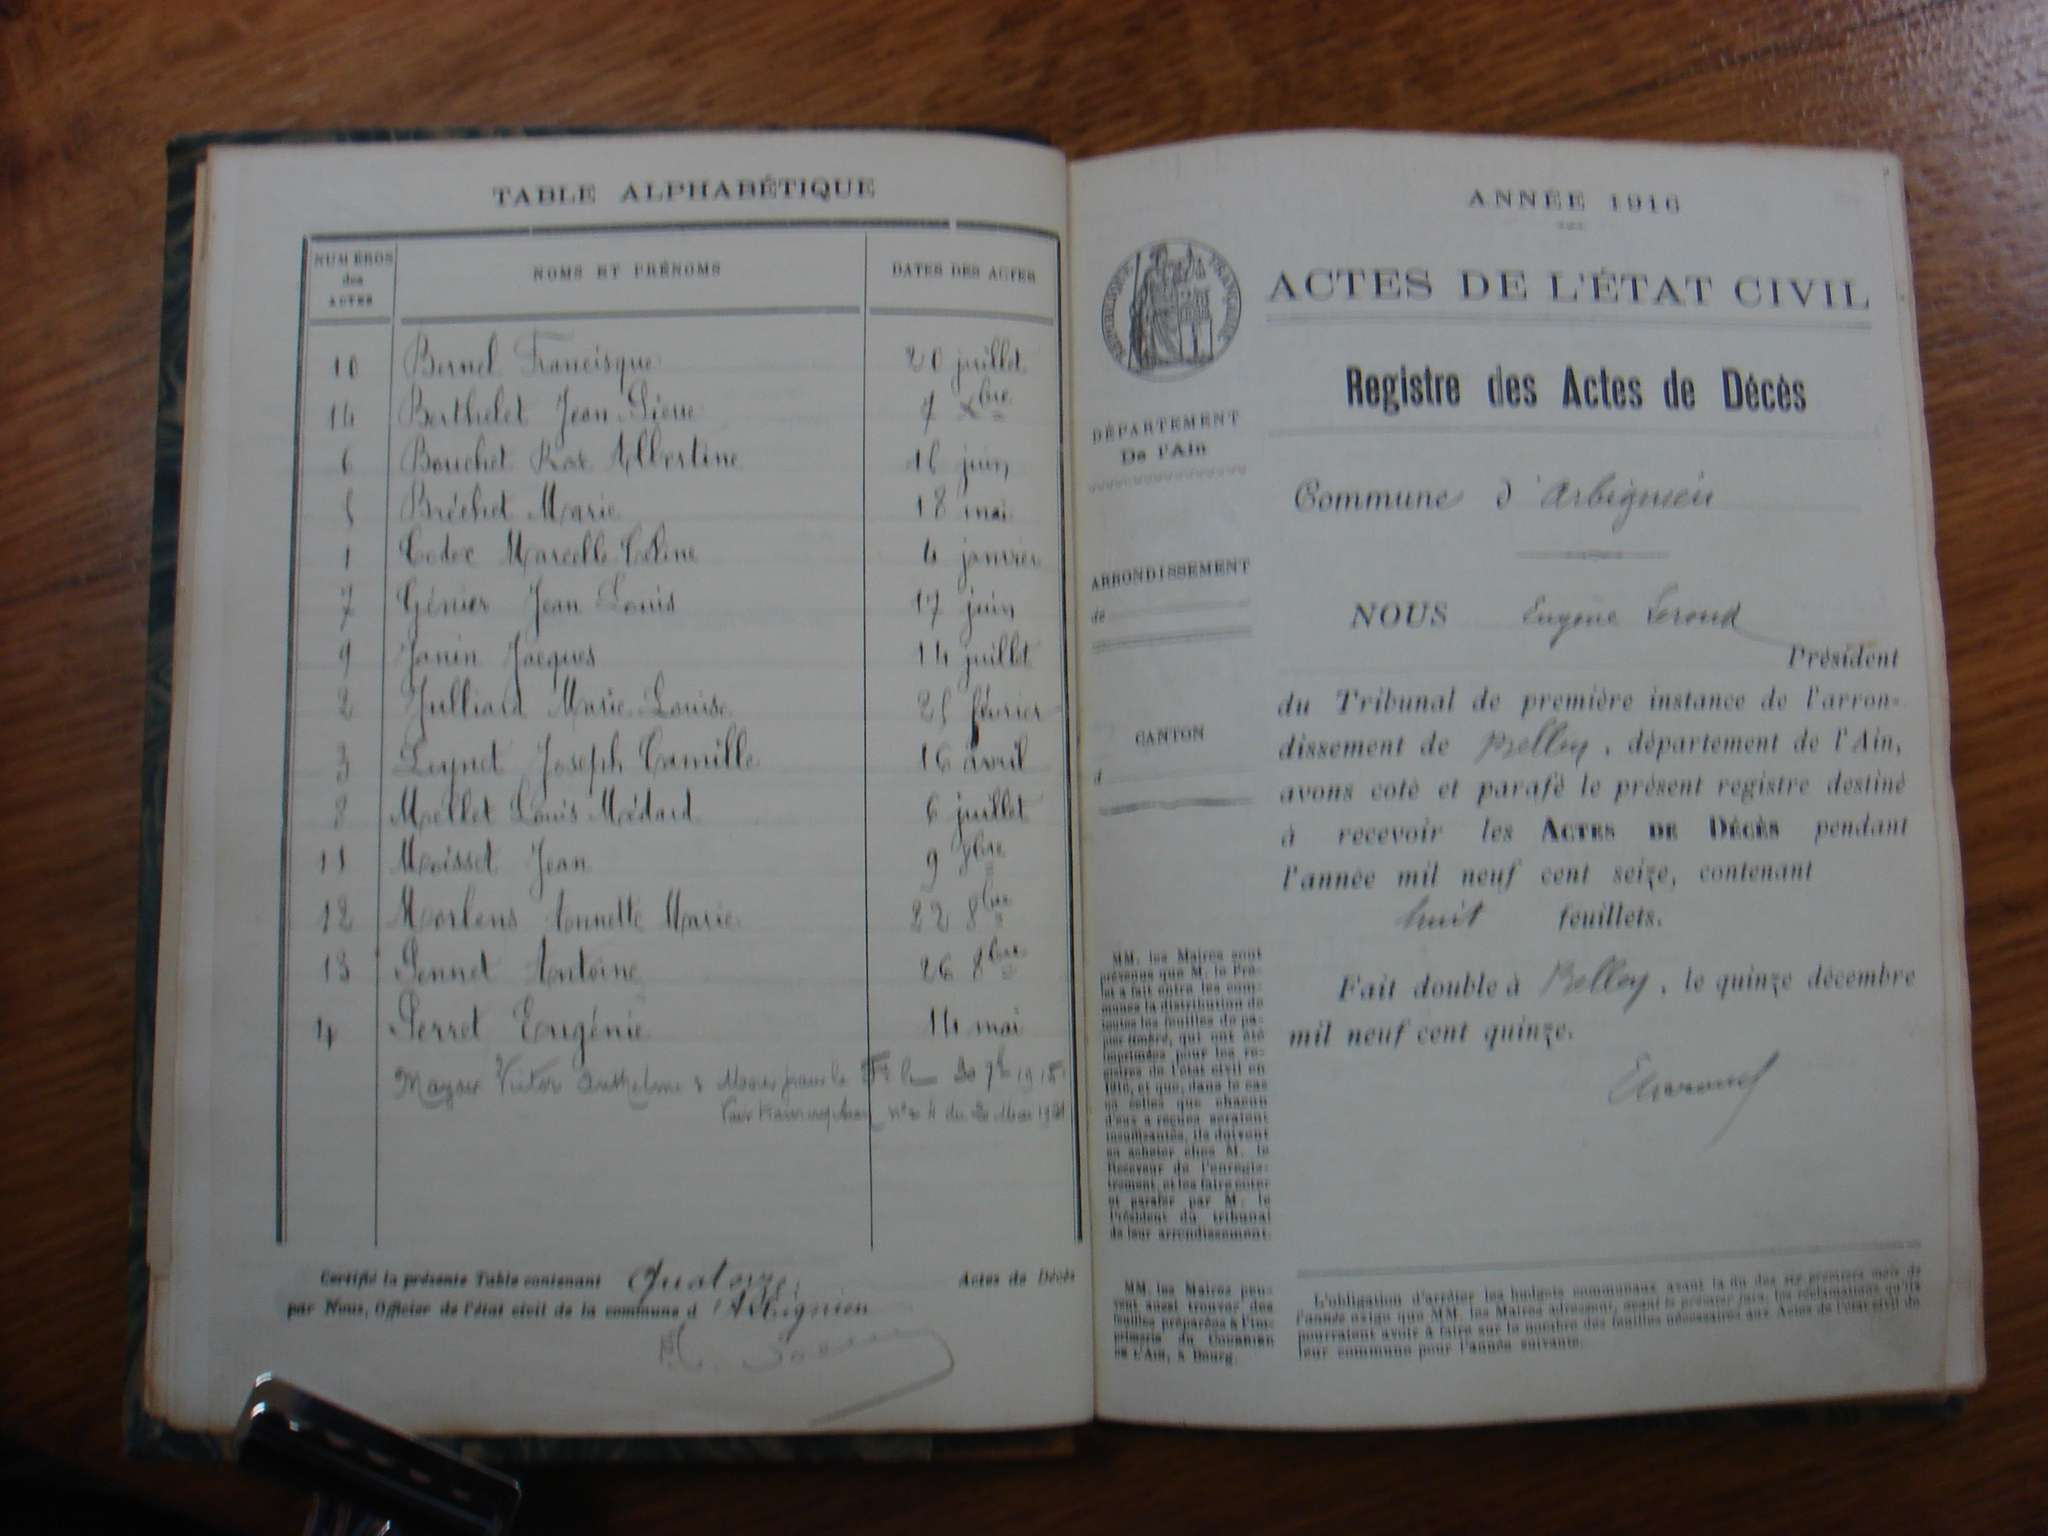 TABLE ALPHABÉTIQUE
NUMÉROS des ACTES NOMS ET PRÉNOMS DATES DES ACTES
10 Bernel Francisque 20 juillet
14 Berthelet Jean Pierre 7 Xbre
6 Bouchet Albertine 16 juin
5 Bréchet Marie 18 mai
1 Marcelle Céline 4 janvier
7 Génier Jean Louis 17 juin
9 Janin Jacques 14 juillet
2 Julliard Marie Louise 25 février
3 Leynet Joseph Camille 16 avril
8 Mollet Louis Médard 6 juillet
11 Moisset Jean 9 8bre
12 Morlens Annette Marie 22 8bre
13 Pennet Antoine 26 8bre
4 Perret Eugénie 14 mai
Victor Anthelme Mort pour la
n° 4 du
Certifié la présente Table contenant Quatorze Actes de Décès
par Nous, Officier de l'état civil de la commune d'Arbignieu
ANNÉE 1916
RÉPUBLIQUE FRANÇAISE
ACTES DE L'ÉTAT CIVIL
Registre des Actes de Décès
DÉPARTEMENT
De l'Ain
ARRONDISSEMENT
de
CANTON
d
Commune d'Arbignieu
NOUS Eugène
Président
du Tribunal de première instance de l'arron-
dissement de Belley, département de l'Ain,
avons coté et parafé le présent registre destiné
à recevoir les ACTES DE DÉCÈS pendant
l'année mil neuf cent seize, contenant
huit feuillets.
Fait double à Belley, le quinze décembre
mil neuf cent quinze.
MM. les Maires sont
prévenus que M. le Pré-
fet a fait entre les com-
munes la distribution de
toutes les feuilles de pa-
pier timbré, qui ont été
imprimées pour les re-
gistres de l'état civil en
1916, et que, dans le cas
où celles que chacun
d'eux a reçues seraient
insuffisantes, ils doivent
en acheter chez M. le
Receveur de l'enregis-
trement, et les faire coter
et parafer par M. le
Président du tribunal
de leur arrondissement.
MM. les Maires peu-
vent aussi trouver des
feuilles préparées à l'im-
primerie du COURRIER
DE L'AIN, à Bourg.
L'obligation d'arrêter les budgets communaux avant la fin des six premiers mois de
l'année exige que MM. les Maires adressent, avant le premier juin, les réclamations qu'ils
pourraient avoir à faire sur le nombre des feuilles nécessaires aux Actes de l'état civil de
leur commune pour l'année suivante.